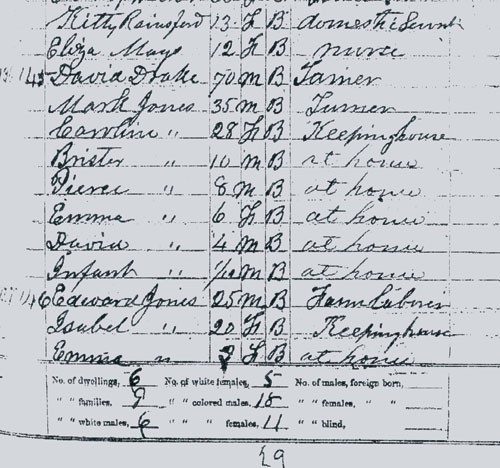 Kitty Rainsford 13 F B domestic Servt
Eliza Mays 12 F B nurse
145 David Drake 70 M B Farmer
Mark Jones 35 M B Turner
Caroline " 28 F B Keeping house
Brister " 10 M B at home
Pierce " 8 M B at home
Emma " 6 F B at home
David " 4 M B at home
Infant " M B at home
146 Edward Jones 25 M B Farm Laborer
Isabel " 20 F B Keeping house
Emma " 3 F B at home
No. of dwellings, 6 No. of white females, 5 No. of males, foreign born,
" " families, 9 " " colored males, 18 " " females, " "
" " white males, 6 " " " females, 11 " " blind,
29